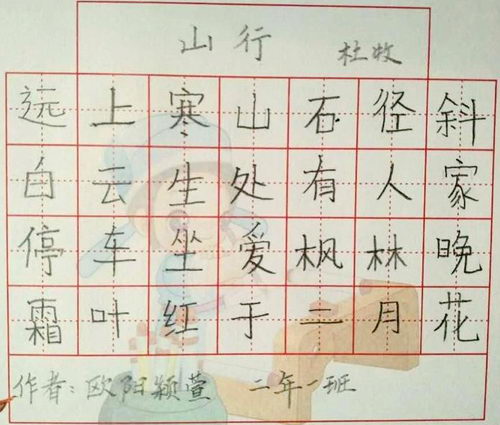 山行 杜牧
远上寒山石径斜
白云生处有人家
停车坐爱枫林晚
霜叶红于二月花
作者：欧阳颖萱 二年一班